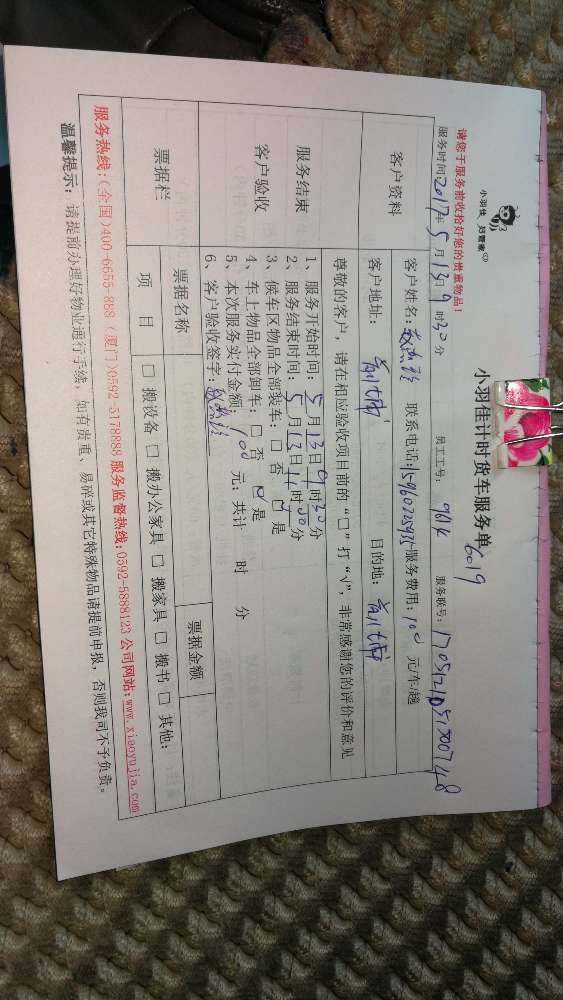 小羽佳 好管家
小羽佳计时货车服务单 6019
请您于服务前收拾好您的贵重物品！
服务时间：2017年5月13日9时30分 员工工号：901K 服务账号：
客户资料
客户姓名： 联系电话： 服务费用：100元/车/趟
客户地址： 目的地：
尊敬的客户，请在相应验收项目前的“□”打“√”，非常感谢您的评价和意见
服务结束
客户验收
1、服务开始时间：5月13日9时30分
2、服务结束时间：5月13日11时00分
3、候车区物品全部装车：□ 否 ☑ 是
4、车上物品全部卸车：□ 否 ☑ 是
5、本次服务实付金额 100 元；共计 时 分
6、客户验收签字：
票据栏
票据名称 票据金额
项目 □ 搬设备 □ 搬办公家具 □ 搬家具 □ 搬书 □ 其他：
服务热线：(全国)400-6655-888 (厦门)0592-5178888 服务监督热线：0592-5888123 公司网站：www.xiaoyujia.com
温馨提示：请提前办理好物业通行手续，如有贵重、易碎或其它特殊物品请提前申报，否则我司不予负责。